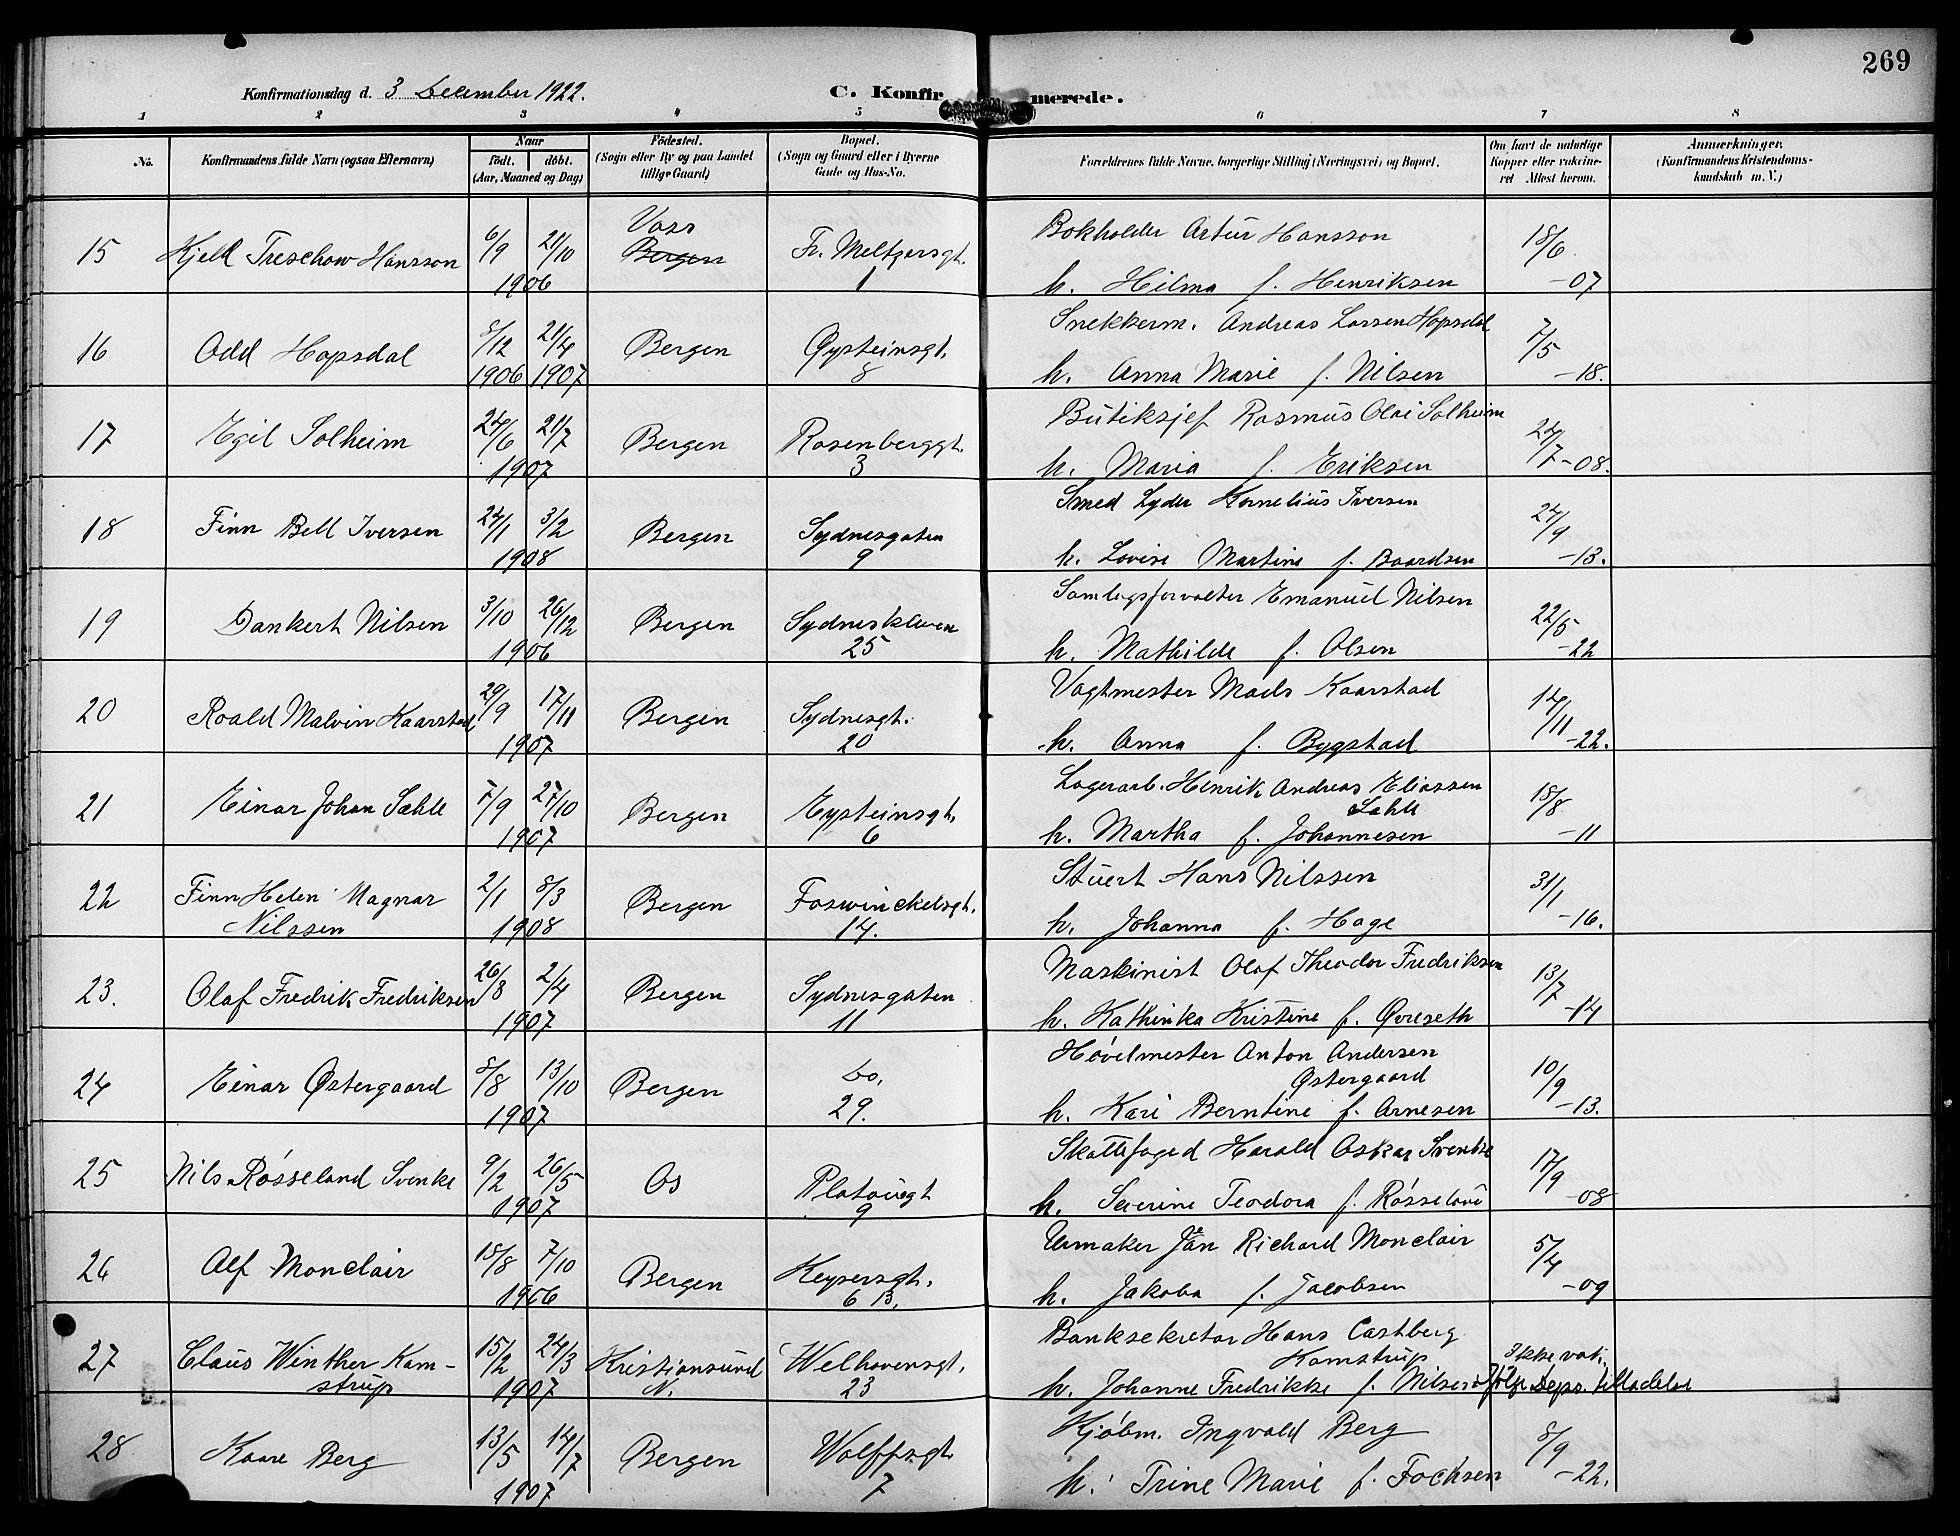 269
Konfirmationsdag d. 3 December 1922.
C. Konfirmerede.
1 2 3 4 5 6 7 8
No. Konfirmandens fulde Navn (ogsaa Efternavn) Naar født. døbt. (Aar, Maaned og Dag) Fødested. (Sogn eller By og paa Landet tillige Gaard) Bopæl. (Sogn og Gaard eller i Byerne Gade og Hus-No. Forældrenes fulde Navne, borgerlige Stilling (Næringsvei) og Bopæl. Om havt de naturlige Kopper eller vakcineret Attest herom. Anmærkninger. (Konfirmandens Kristendomskundskab m. V.)
Voss
15 Kjell Treschow Hansson 6/9 21/10 Bergen Fr. Meltzersgt. Bokholder Artur Hansson 18/6
1906 1 h. Hilma f. Henriksen -07
16 Odd Hopsdal 8/12 21/4 Bergen Øysteinsgt. Snekkerm. Andreas Larsen Hopsdal 7/5
1906 1907 8 h. Anna Marie f. Nilsen -18.
17 Egil Solheim 24/6 21/7 Bergen Rosenberggt. Butiksjef Rasmus Olai Solheim 24/7
1907 3 h. Maria f. Eriksen -08.
18 Finn Bell Iversen 24/1 3/2 Bergen Sydnesgaten Smed Lyder Kornelius Iversen 24/9
1908 9 h. Lovise Martine f. Baardsen -13.
19 Dankert Nilsen 3/10 26/12 Bergen Sydneskleven Samlagsforvalter Emanuel Nilsen 22/5
1906 25 h. Mathilde f. Olsen -22
20 Roald Malvin Kaarstad 29/9 17/11 Bergen Sydnesgt. Vagtmester Mads Kaarstad 14/11
1907 20 h. Anna f. Bygstad -22.
21 Einar Johan Sæhle 7/9 27/10 Bergen Eysteinsgt. Lagerarb. Henrik Andreas Eliassen 18/8
Sæhle
1907 6 h. Martha f. Johannesen -11
22 Finn Helen Magnar 2/1 8/3 Bergen Foswinckelsgt. Stuert Hans Nilssen 31/1
Nilssen 1908 14. h. Johanna f. Hage -16.
23. Olaf Fredrik Fredriksen 26/8 2/4 Bergen Sydnesgaten Maskinist Olaf Theodor Fredriksen 13/7
1907 11 h. Kathinka Kristine f. Øvreseth -14
24 Einar Østergaard 8/8 13/10 Bergen do. Høvelmester Anton Andersen 10/9
Østergaard
1907 29. h. Kari Berntine f. Arnesen -13.
25 Nils Røsseland Svenke 9/2 26/5 Os Platougt Skattefoged Harald Oskar 17/9
1907 9 h. Severine Teodora f. Røsseland -08
26 Alf Monclair 18/8 7/10 Bergen Keysersgt. Urmaker Jan Richard Monclair 5/4
1906 6 B. h. Jakoba f. Jacobsen -09
27 Claus Winther Kam- 15/2 24/3 Kristiansund Welhavensgt. Banksekretær Hans Castberg
strup Kamstrup Ikke vak.
1907 N. 23 h. Johanne Fredrikke f. Nilsen ifølge Deps. tilladelse
28 Kaare Berg 13/5 14/7 Bergen Wolffsgt. Kjøbm. Ingvald Berg 8/9
1907 7 h. Trine Marie f. Fochsen -22.